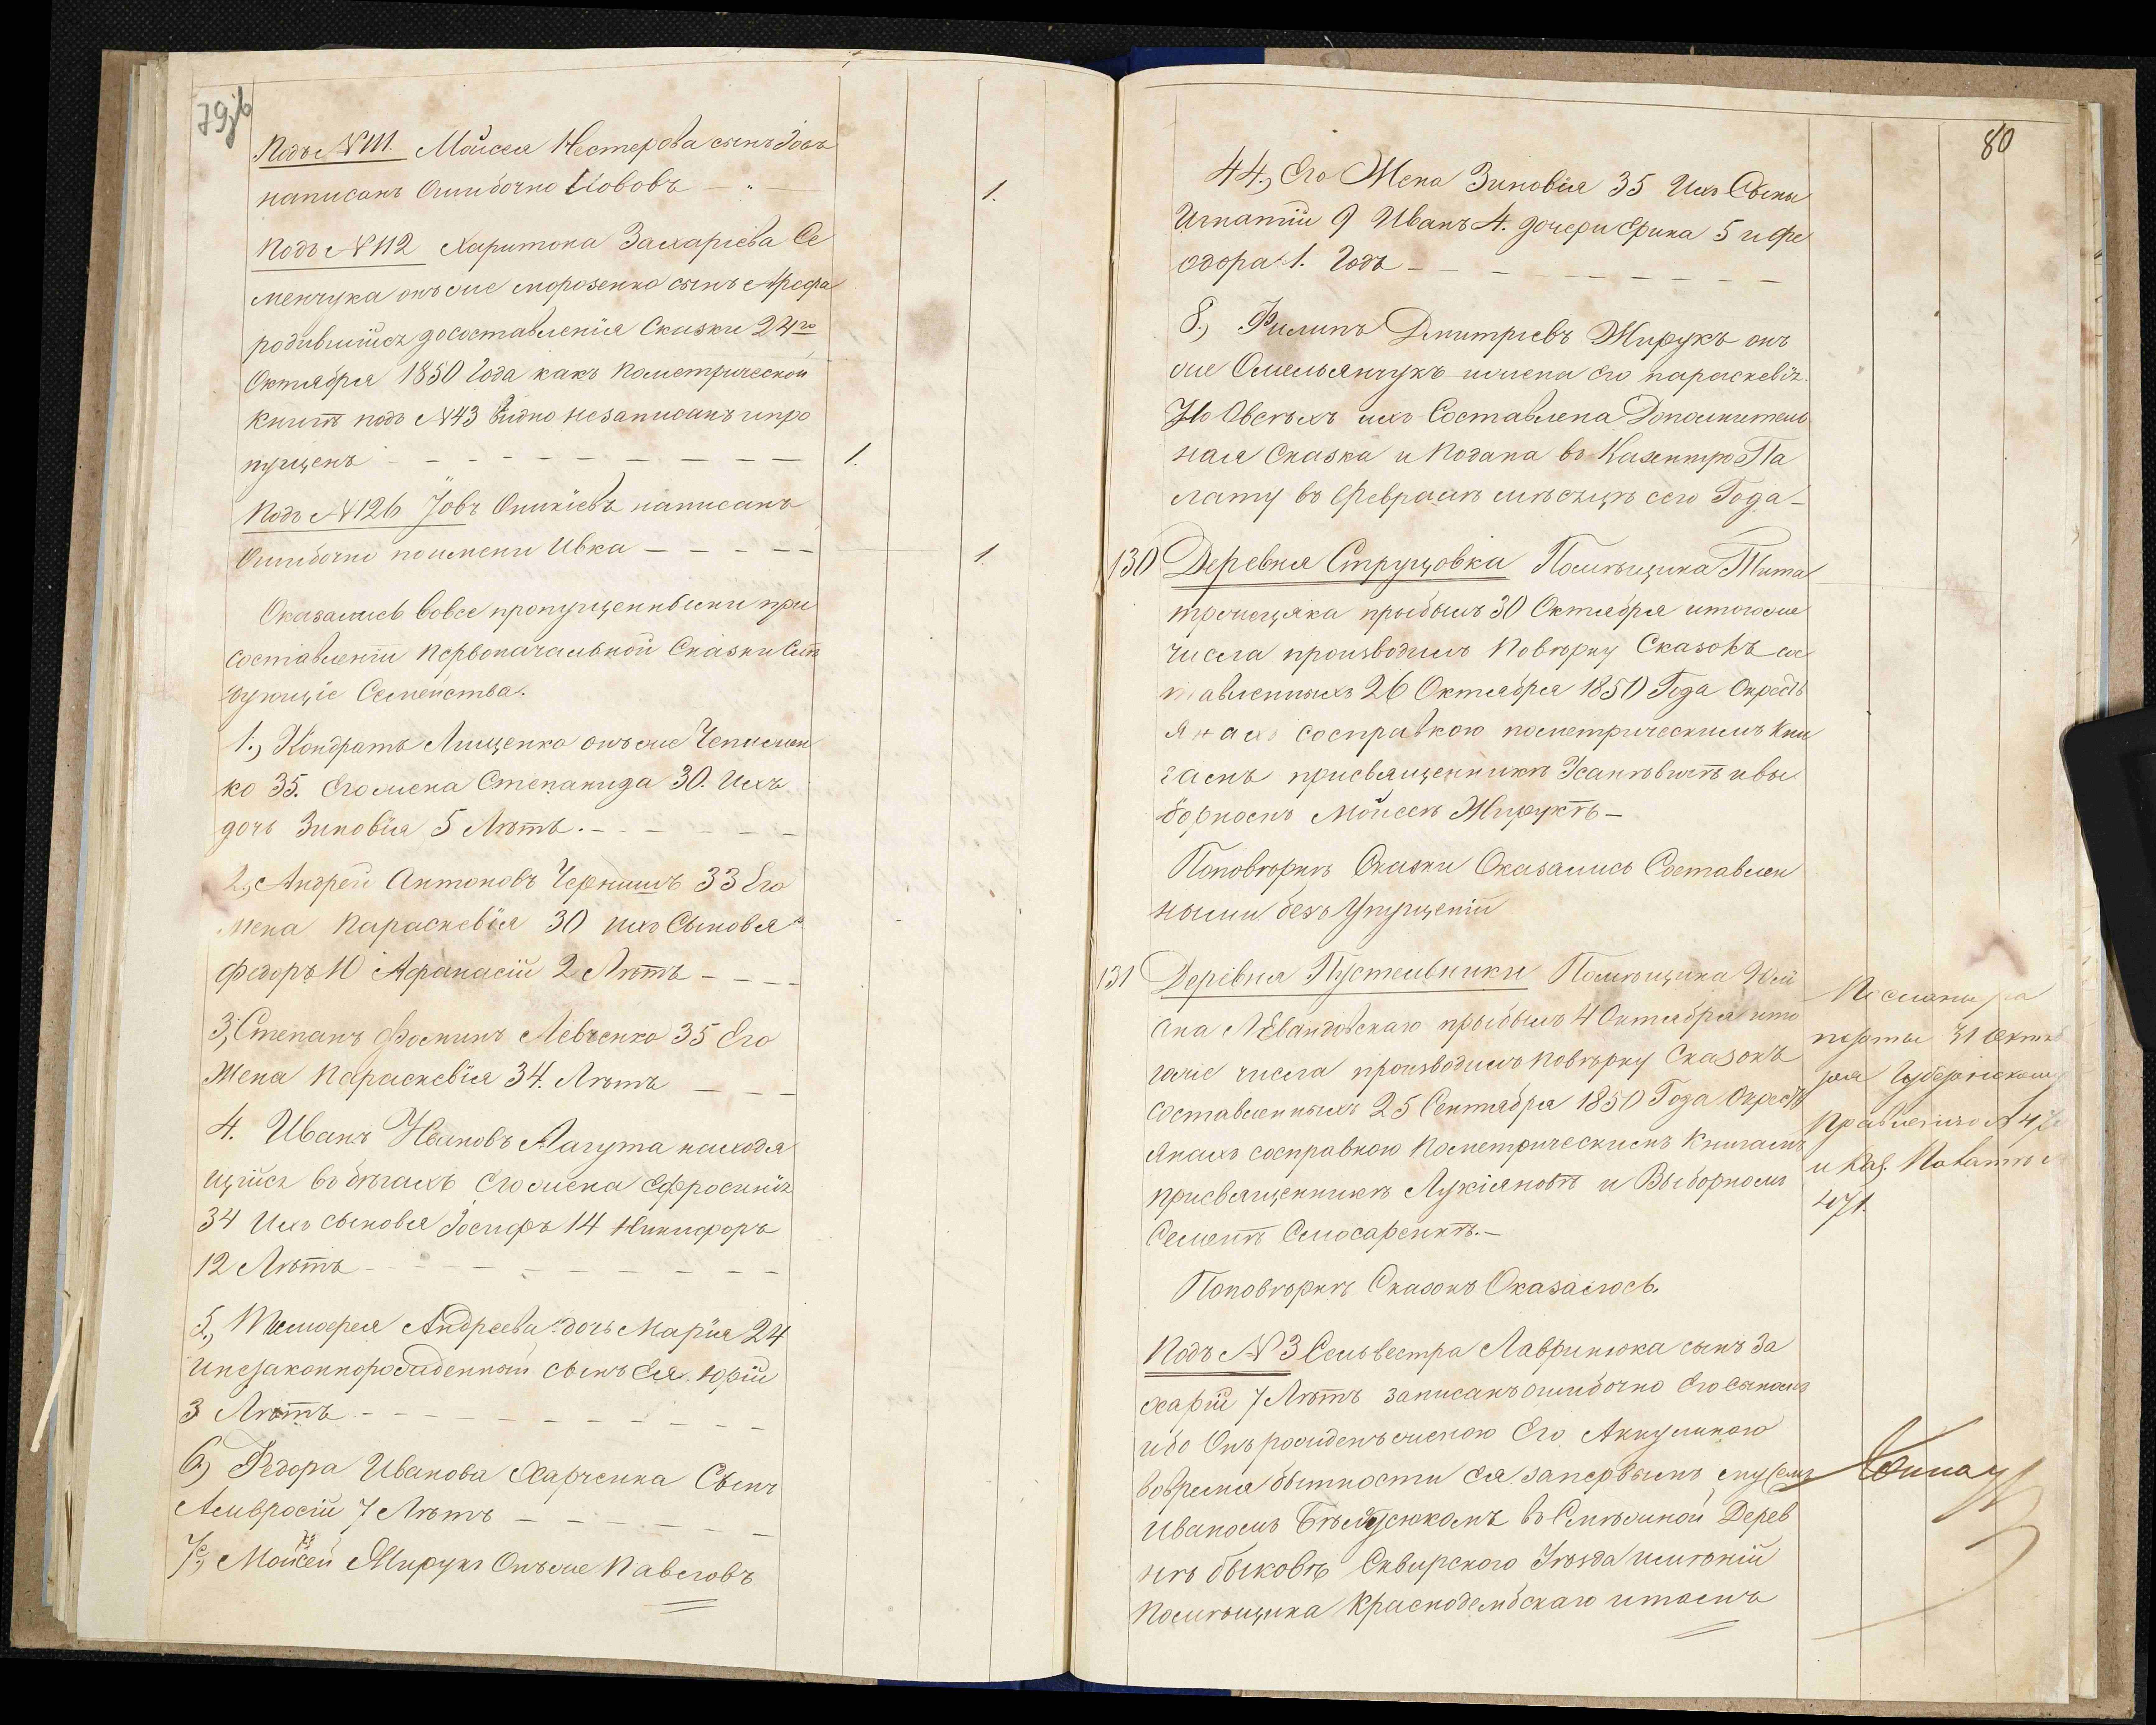 79
Подъ №111. Мойсея Нестерова сынъ Іовъ
написанъ Ошибочно Иововъ — " — 1.
Подъ №112 Харитона Захаріева Се
менчука онъ же морозенко сынъ Арефа
родившійся до составленія Сказки 24го
Октября 1850 Года какъ по метрической
книгѣ подъ №43 Видно незаписанъ и про
пущенъ — 1.
Подъ №126 Іовъ Оникіевъ написанъ
Ошибочно по имени Ивка — 1.
Оказались вовсе пропущенными при
составленіи первоначальной Сказки Слѣ
дующіе Семейства.
1., Кондратъ Лищенко онъ же
ко 35. Его жена Степанида 30. Ихъ
дочь Зиновія 5 Лѣтъ. —
2., Андрей Антоновъ Чернишъ 33 Его
жена Параскевія 30 ихъ Сыновья
Федоръ 10 Афанасій 2 Лѣтъ —
3., Степанъ Фоминъ Левченко 35 Его
Жена Параскевія 34. Лѣтъ —
4. Иванъ Ивановъ Лагута находя
щійся въ бѣгахъ Его жена Ефросинія
34 Ихъ сыновья Іосифъ 14 Никифоръ
12 Лѣтъ —
5., Андреева дочь Марія 24
и незаконнорожденный сынъ Ея Юрій
3 Лѣтъ —
6., Федора Иванова Харченка Сынъ
Амвросій 7 Лѣтъ —
7., Мойсей Жирукъ Онъ же Павловъ
80
44., Его Жена Зиновія 35 Ихъ Сыны
Игнатій 9 Иванъ 4. дочери Ірина 5 и Фе
одора 1. Годъ —
8., Филипъ Дмитріевъ Жирукъ онъ
же Омельянчукъ и жена его параскевія.
Но Овсѣхъ ихъ Составлена Дополнитель
ная Сказка и Подана въ Казенную Па
лату въ Февралѣ мѣсяцѣ сего Года —
130 Деревня Струцовка Помѣщика Тита
прибылъ 30 Октября и того же
числа производилъ Повѣрку Сказокъ со
ставленныхъ 26 Октября 1850 Года Окресть
янахъ со справкою по метрическимъ Кни
гамъ при священникѣ и вы
борномъ Мойсеѣ Жирукѣ —
По повѣркѣ Сказки Оказались Составлен
ными безъ Упущеній
131 Деревня Пустельники Помѣщика
прибылъ 4 Октября и то
гоже числа производилъ повѣрку Сказокъ
составленныхъ 25 Сентября 1850 Года Окресть
янахъ со справкою По метрическимъ Книгамъ
при священникѣ Лукіяновѣ и Выборномъ
Семенѣ Слюсаренкѣ. —
По повѣркѣ Сказокъ Оказалось.
Подъ №3 Сельвестра Лавринюка сынъ За
харій 7 Лѣтъ записанъ ошибочно Его Сыномъ
ибо Онъ рожденъ женою Его Акулиною
во время бытности ея за первымъ мужемъ
Иваномъ въ Смѣжной Дерев
нѣ быковѣ Сквирского Уѣзда имѣній
Помѣщика и тамъ
Посланы ра
порты 31 Октяб
ря Губернскому
Правленію №
и Каз. Палатѣ №
471.